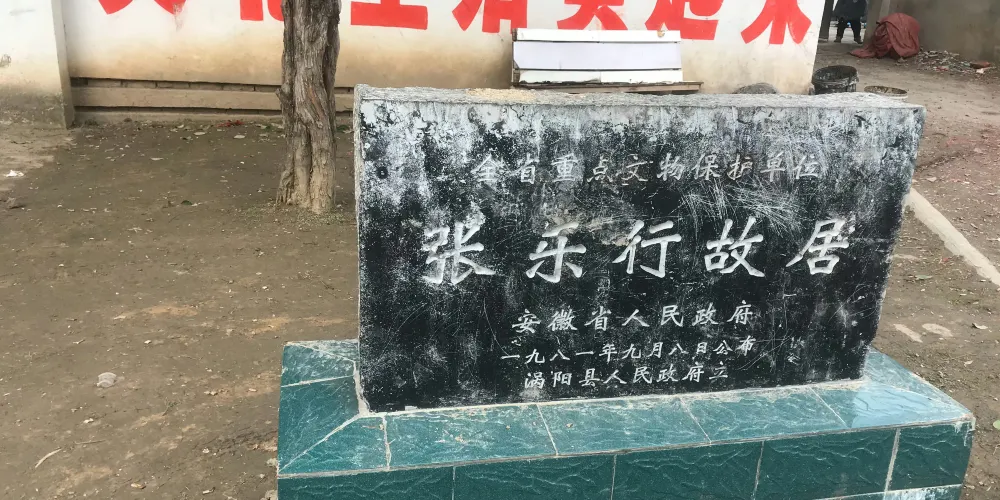 全省重点文物保护单位
张乐行故居
安徽省人民政府
一九八一年九月八日公布
涡阳县人民政府立